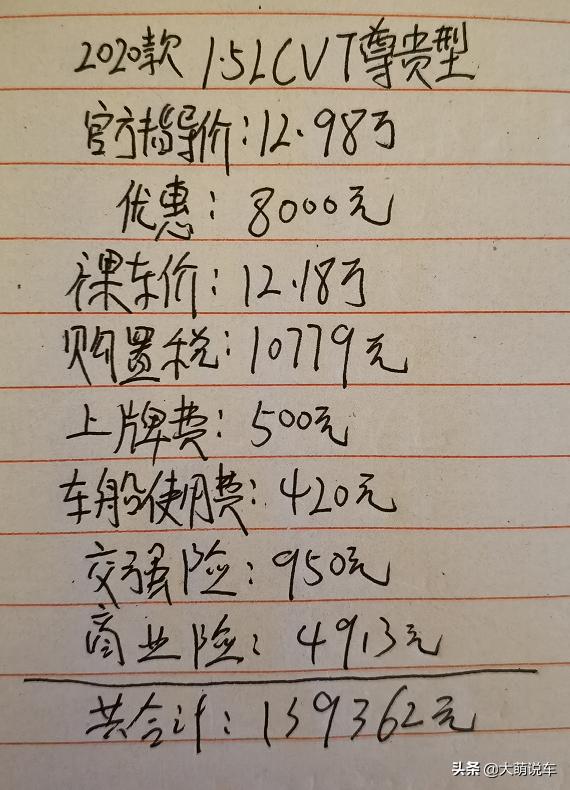 2020款 1.5L CVT尊贵型
官方指导价:12.98万
优惠:8000元
裸车价:12.18万
购置税:10779元
上牌费:500元
车船使用费:420元
交强险:950元
商业险:4913元
共合计:139362元
头条 @大萌说车